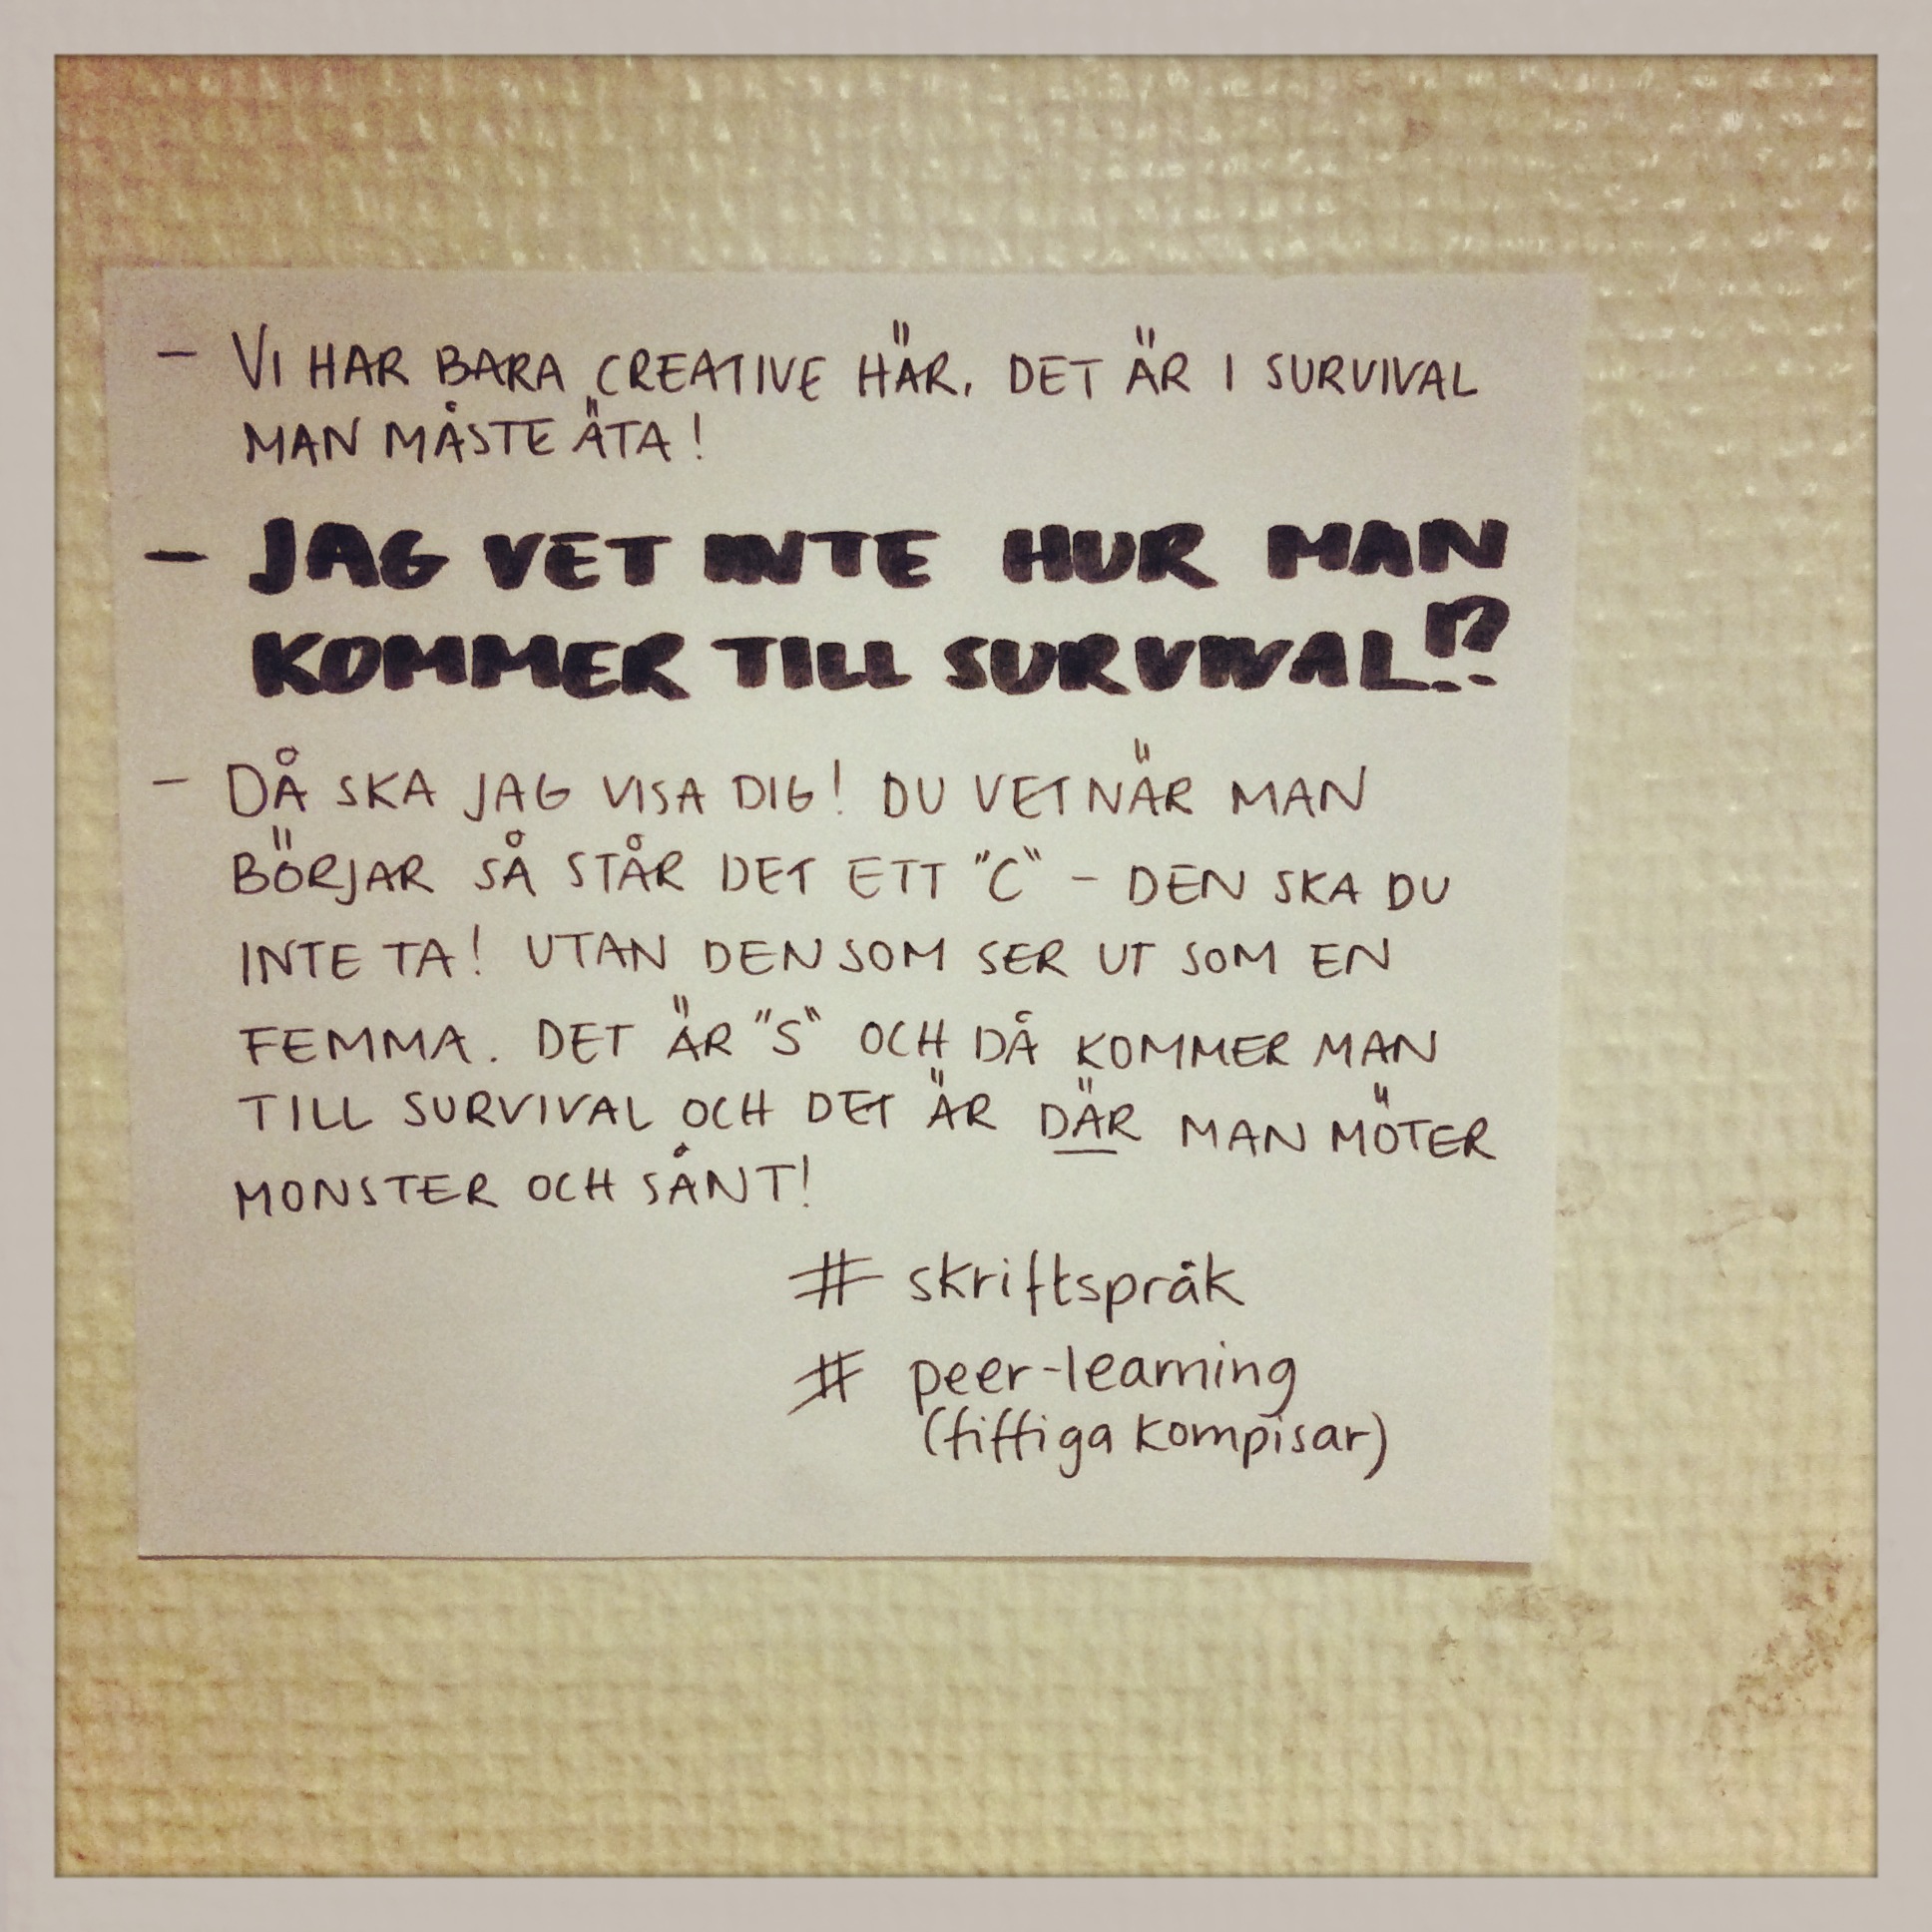 – VI HAR BARA CREATIVE HÄR. DET ÄR I SURVIVAL
MAN MÅSTE ÄTA!
– JAG VET INTE HUR MAN
KOMMER TILL SURVIVAL!?
– DÅ SKA JAG VISA DIG! DU VET NÄR MAN
BÖRJAR SÅ STÅR DET ETT "C" – DEN SKA DU
INTE TA! UTAN DEN SOM SER UT SOM EN
FEMMA. DET ÄR "S" OCH DÅ KOMMER MAN
TILL SURVIVAL OCH DET ÄR DÄR MAN MÖTER
MONSTER OCH SÅNT!
# skriftspråk
# peer-learning
(fiffiga kompisar)